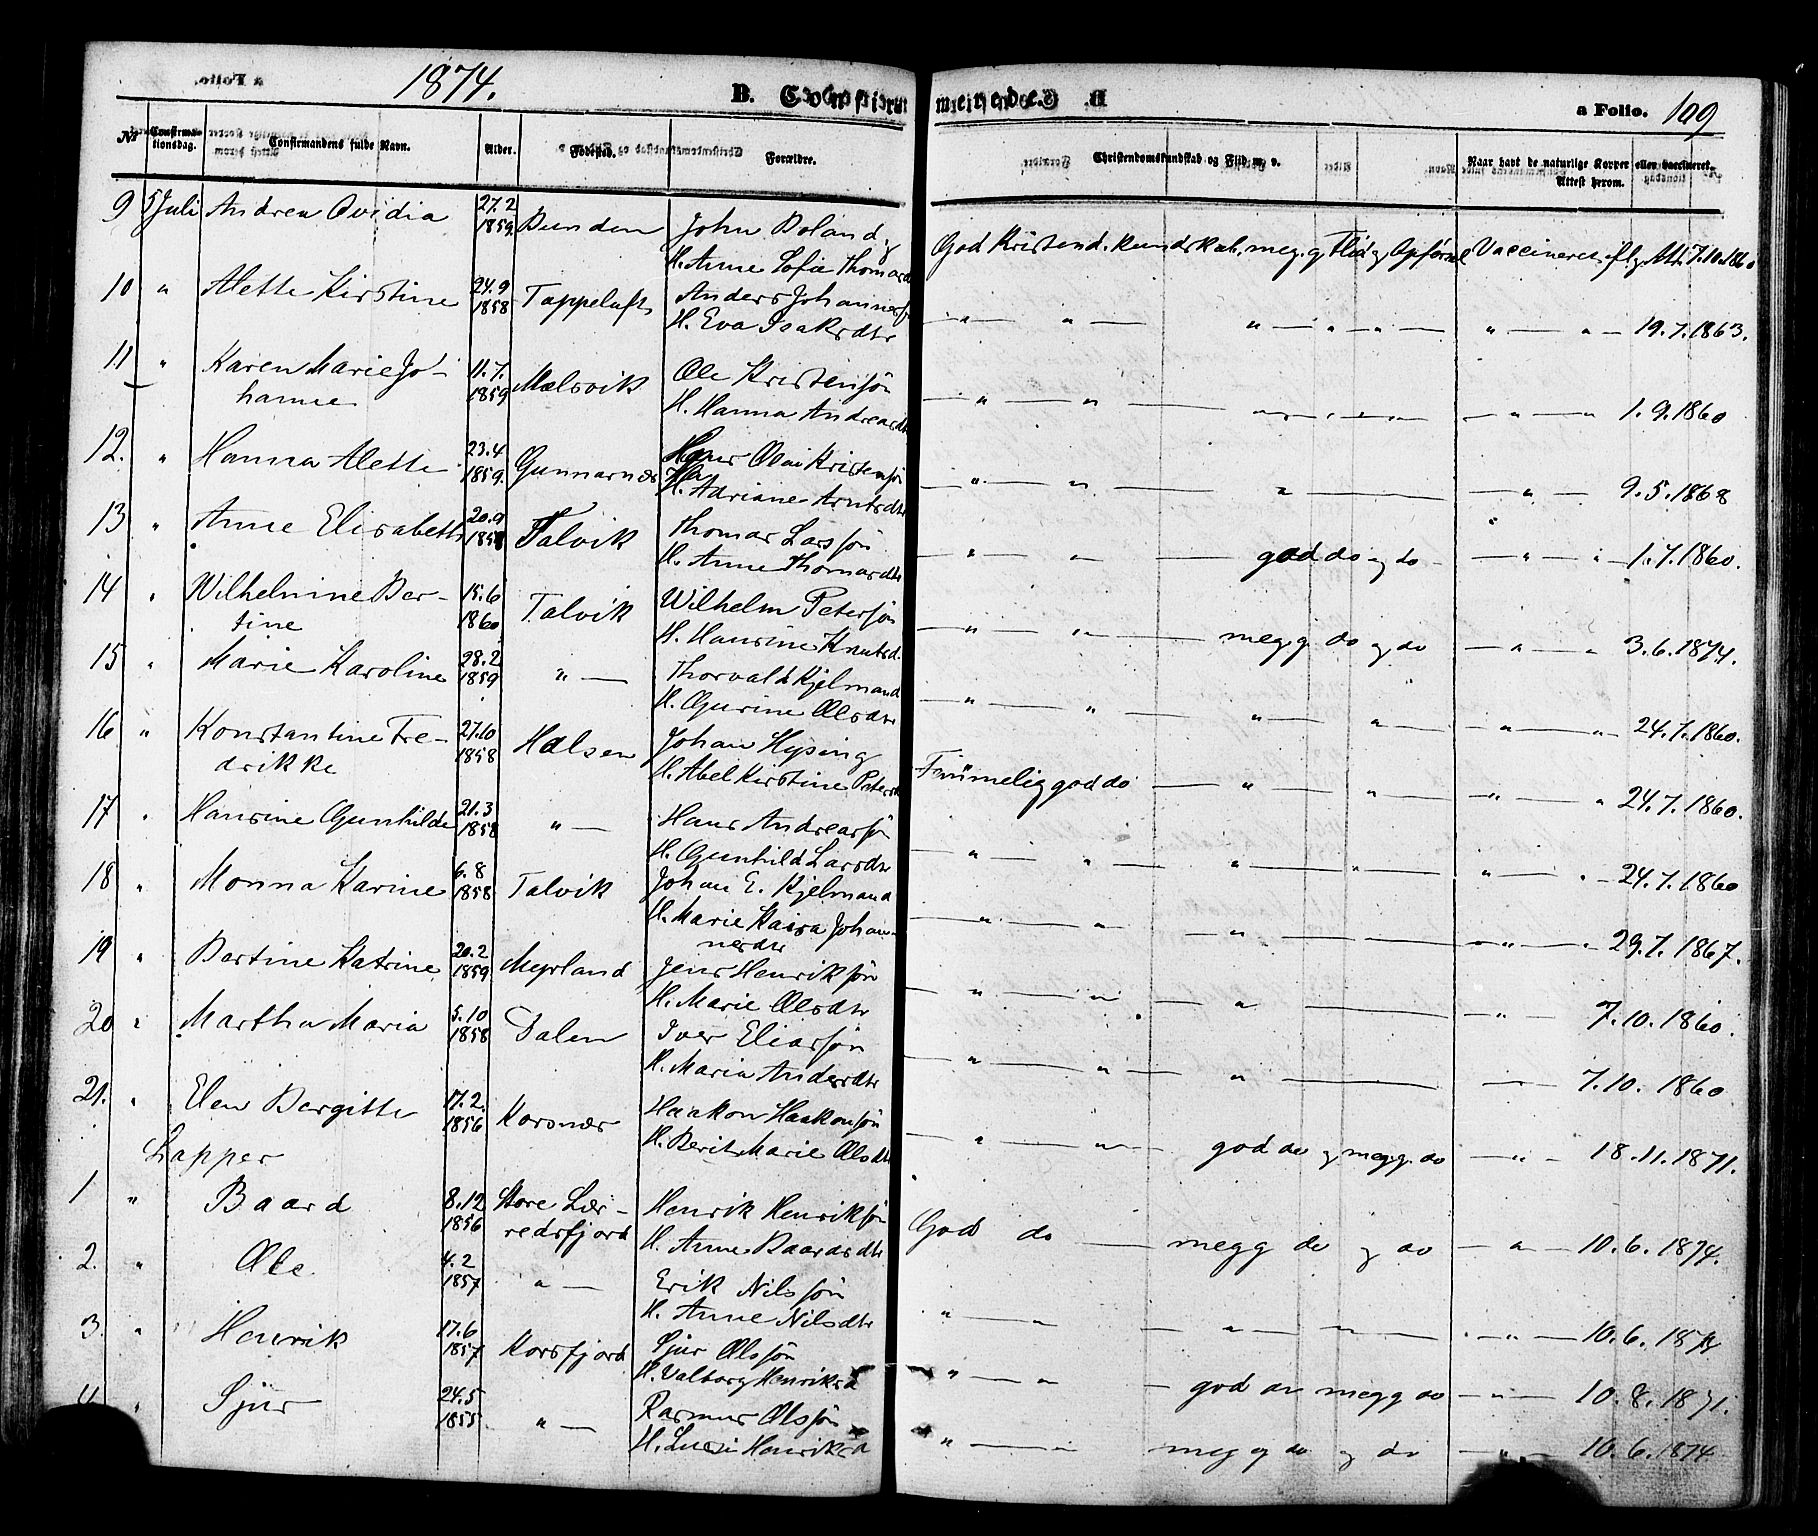 1874.
B. Confirmerede.
a Folio. 109
No Confirmationsdag. Confirmandens fulde Navn. Alder. Fødested. Forældre. Christendomskundskab og Flid m. v. Naar havt de naturlige Kopper eller vaccineret. Attest herom.
9 5 Juli Andrea Ovidia 27.2 1859. Bunden John Boland og H. Anne Sofie Thomasdt God Kristend. kundskab, meg. g. Flid og Opførsel Vaccineret iflg. Att. 7.10.1860
10 " Alette Kirstine 24.9 1858 Tappeluft Anders Johannes H. Eva Isaksdtr " " " " " " " 19.7.1863.
11 " Karen Marie Johanne 11.7. 1859 Melsvik Ole Kristensøn H. Hanna Andreasdtr " " " " " " " 1.9.1860
12. " Hanna Alette 23.4 1859. Gunnarnæs Hans Olai Kristensøn H. Adriane Arntsdtr " " " " 9.5.1868
13 " Anne Elisabeth 20.9 1858 Talvik Thomas Larssøn H. Anne Thomasdtr " " god do og do " " 1.7.1860.
14 " Wilhelmine Bertine 15.6 1860 Talvik Wilhelm Petersøn H. Hansine Knutsd. " " megg. do og do " " 3.6.1874.
15 " Marie Karoline 28.2 1859 " Thorvald Kjelmand H. Gurine Olsdtr " " " " " " 24.7.1860.
16 " Konstantine Fredrikke 27.10 1858 Halsen Johan Hysing H. Abel Kirstine Peters Temmelig god do " " " " 24.7.1860.
17 " Hansine Gunhilde 21.3 1858 " Hans Andreassøn H. Gunhild Larsdtr " " " " " " 24.7.1860
18 " Monna Karine 6.8 1858 Talvik Johan E. Kjelmand H. Marie Kaisa Johannesdtr " " " " " 29.7.1867.
19 " Bertine Katrine 20.2 1859 Myrland Jens Henriksøn H. Marie Olsdtr " " " " 7.10.1860.
20 " Martha Maria 5.10 1858 Dalen Iver Eliassøn H. Maria Andersdtr " " " 7.10. 1860
21. " Elen Bergitte 17.2. 1856 Korsnæs Haakon Haakonsøn H. Berit Marie Olsdtr " " god do og megg. do " 18.11.1871.
Lapper
1 " Baard 8.12 1856 Store Lerredsfjord Henrik Henriksøn H. Anne Baardsdtr God do megg do og do " 10.6.1874.
2. " Ole 4.2 1857 " Erik Nilssøn H. Anne Nilsdtr " " " " " 10.6.1874
3. " Henrik 17.6 1857 Korsfjord Sjur Olssøn H. Valborg Henriksd " " god do megg do " 10.8.1871.
4 " Sjur 24.5 1855 " Rasmus Olssøn H. Henriksd " " megg do og do " 10.6.1874